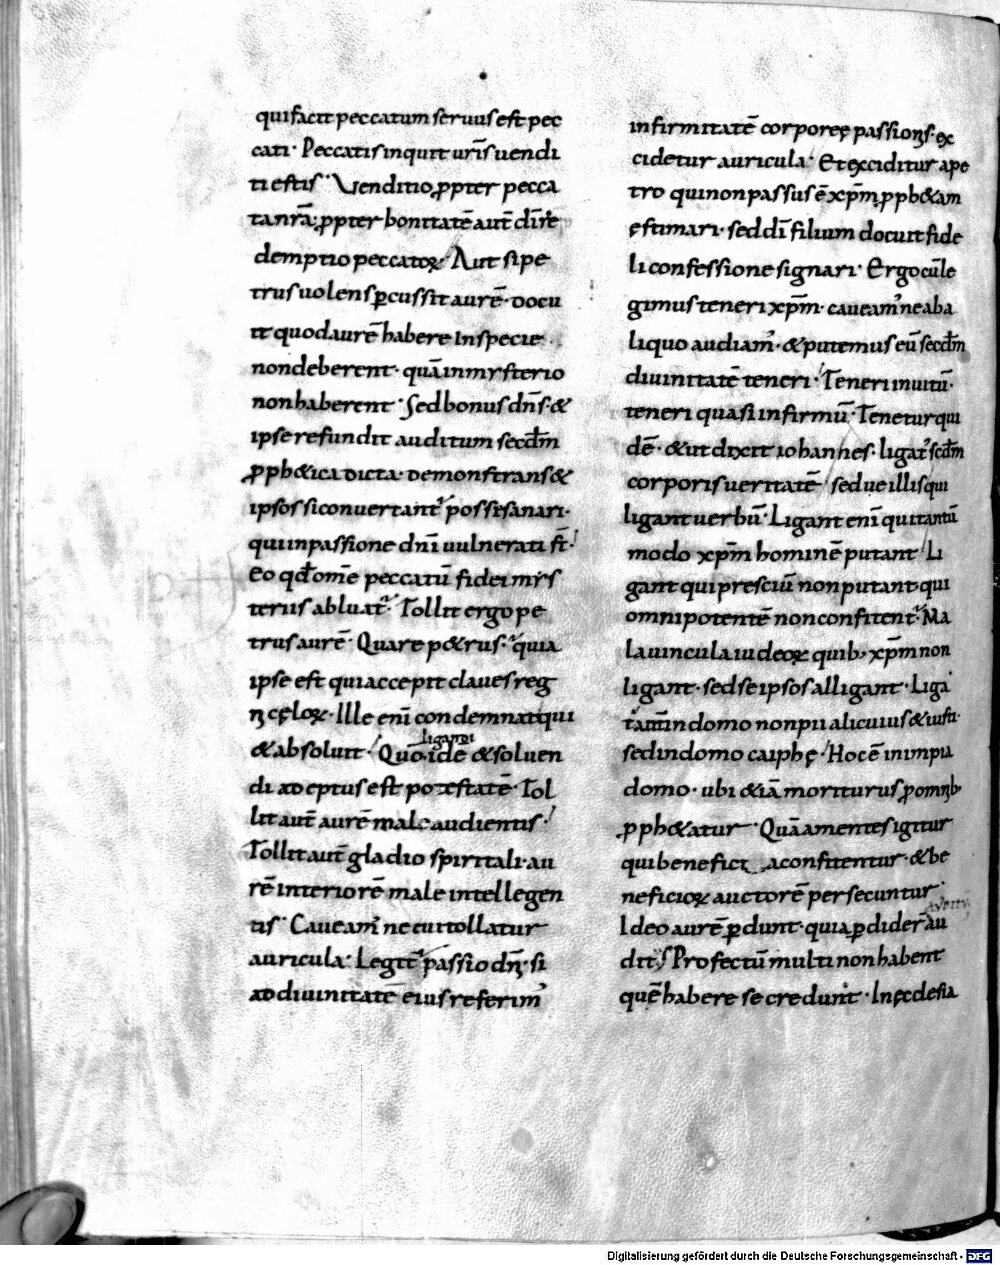 qui facit peccatum seruus est pec
cati· Peccatis inquit ur̄is uendi
ti estis·· Venditio ꝓpter pecca
ta nr̄a; ꝓpter bonitatē aut̄ dn̄i re
demptio peccatoꝝ· Aut si pe
trus uolens ꝑcussit aurē· docu
it quod aurē habere in specie
non deberent· quā in mysterio
non haberent· Sed bonus dn̄s· &
ipse refundit auditum secdm̄
ꝓph&ica dicta· demonstrans &
ipsos si conuertant᷑ posse sanari·
qui in passione dn̄i uulnerati st̄·
Eo qđ om̄e peccatū fidei mys
teriis abluat᷑· Tollit ergo pe
trus aurē· Quare p&rus· quia
ipse est qui accepit claues reg
ni cęloꝝ· Ille enī condemnat qui
& absoluit· Quō idē
ligandi
& soluen
di adeptus est potestatē· Tol
lit aut̄ aurē male audientis·
Tollit aut̄ gladio spiritali au
rē interiorē male intellegen
tis·· Caueam᷒ ne cui tollatur
auricula· Legit᷑ passio dn̄i· si
ad diuinitatē eius referim᷒
infirmitatē corporeę passionis· ex
cidetur auricula· Et exciditur a pe
tro qui non passus ē xp̄m ꝓph&am
ęstimari· sed dī filium docuit fide
li confessione signari· Ergo cū le
gimus teneri xp̄m· caueam᷒ ne ab a
liquo audiam᷒· & putemus eū secdm̄
diuinitatē teneri· Teneri inuitū·
teneri quasi infirmū· Tenetur qui
dē· & ut dixit iohannes· ligat᷑ scdm̄
corporis ueritatē· sed ue illis qui
ligant uerbū· Ligant enī qui tantū
modo xp̄m hominē putant· Li
gant qui presciū non putant· qui
omnipotentē non confitent᷑· Ma
la uincula iudeoꝝ quib; xp̄m non
ligant· sed se ipsos alligant· Liga
t᷑ tam̄ in domo non pii alicuius & iusti·
sed in domo caiphę· Hoc ē in impia
domo· ubi &iā moriturus ꝓ omnib;
ꝓph&atur· Quā amentes igitur
qui beneficia confitentur· & be
neficioꝝ auctorē persecuntur·
Ideo aurē ꝑdunt· quia ꝑdider̄ au
dit᷒ Profectū multi non habent
quē habere se credunt· In ęcclesia
Digitalisierung gefördert durch die Deutsche Forschungsgemeinschaft - DFG